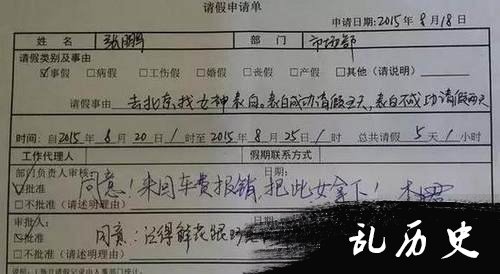 请假申请单
申请日期:2015年8月18日
姓名 张鹏 部门 市场部
请假类别及事由
☑事假 □病假 □工伤假 □婚假 □丧假 □产假 □其他(请说明)
请假事由 去北京找女神表白。表白成功请假五天,表白不成功请假两天
时间:自2015年8月20日1时至2015年8月25日1时 总共请假5天1小时
工作代理人 假期联系方式
部门负责人审核 日期:
☑批准 同意!来回车费报销,把此女拿下!
□不批准(请述明理由)
审批人: 日期
☑批准 同意:记得鲜花跟
□不批准(请述明理由)
乱历史